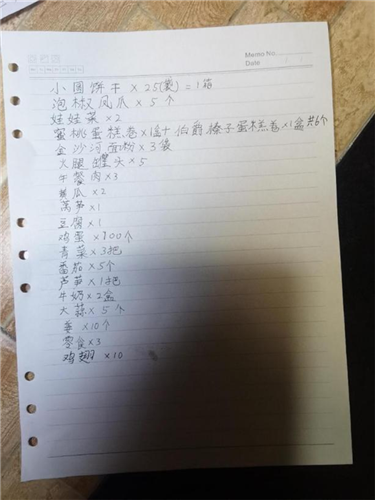 Memo No.
Date
小圆饼干×25(袋)=1箱
泡椒凤爪×5个
娃娃菜×2
蜜桃蛋糕卷×1盒+伯爵榛子蛋糕卷×1盒共6个
金沙河面粉×3袋
火腿罐头×5
午餐肉×3
黄瓜×2
莴笋×1
豆腐×1
鸡蛋×100个
青菜×3把
番茄×5个
芦笋×1把
牛奶×2盒
大蒜×5个
姜×10个
零食×3
鸡翅×10